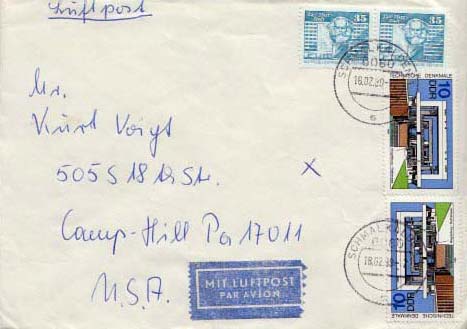 Luftpost
35
35
DDR
DDR
SCHMALKALDEN
6060
18.02.90
TECHNISCHE DENKMALE
10
DDR
Mr.
Kurt Voigt
505 S 18 th Str.
X
Camp-Hill Pa 17011
U.S.A.
MIT LUFTPOST
PAR AVION
SCHMALKALDEN
6060
10
DDR
TECHNISCHE
DENKMALE